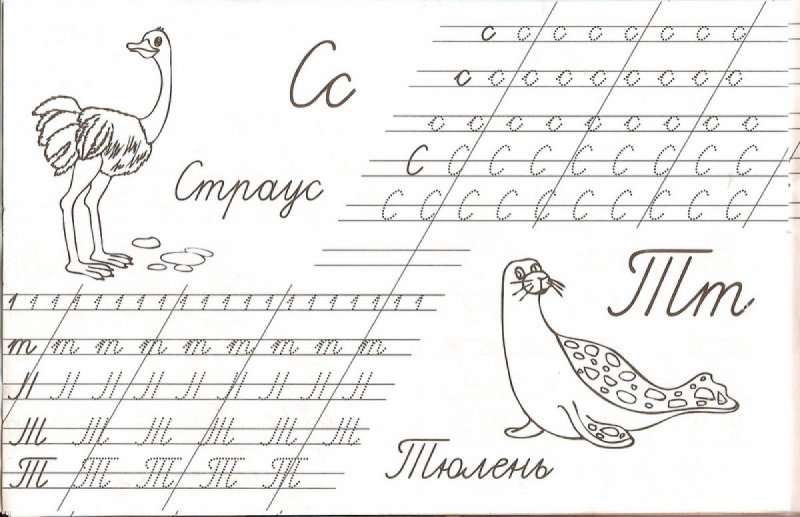 Сс
Страус
с с с с с с с с
с с с с с с с с с
с с с с с с с с с с
С С С С С С С С С
С С С С С С С С С С
Тт
Тюлень
т т т т т т т т т
Т Т Т Т Т Т
Т Т Т Т Т